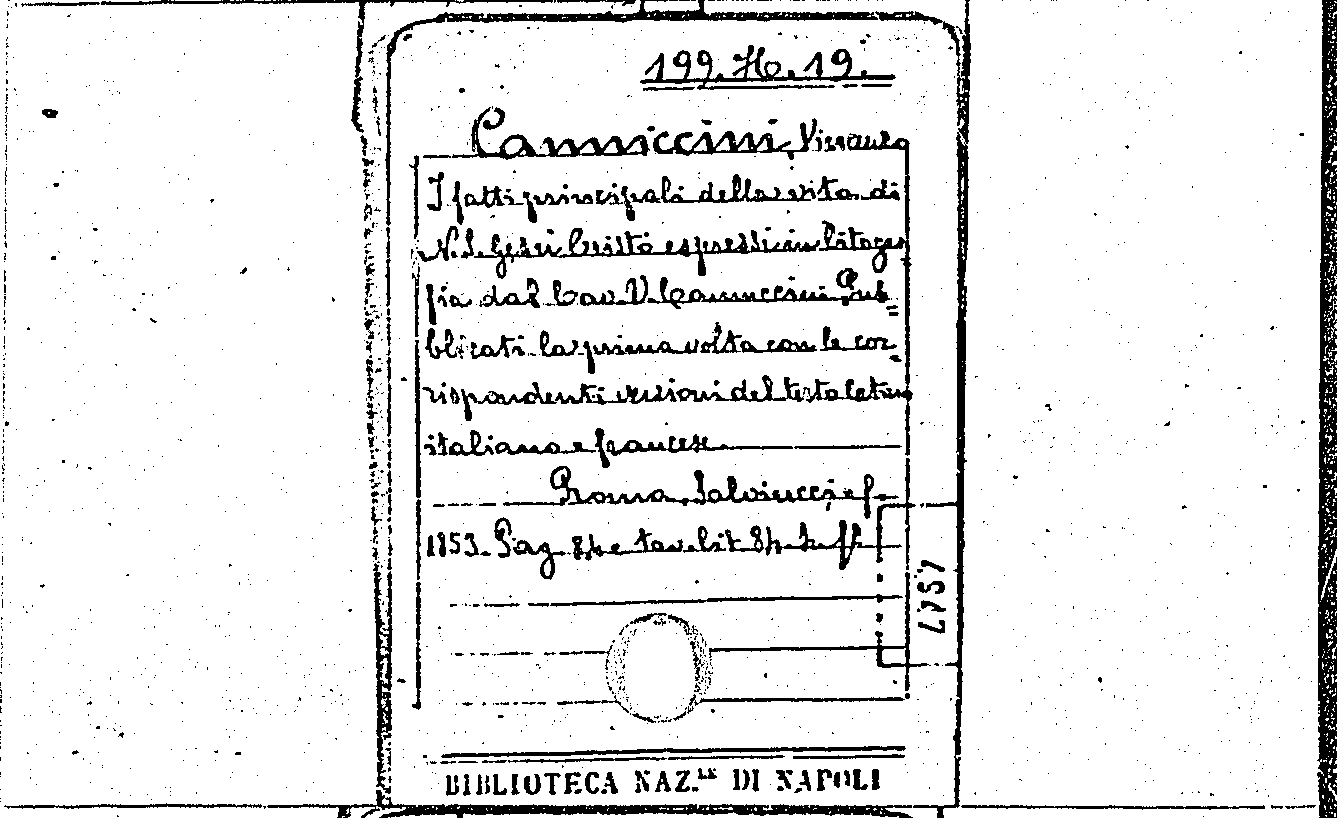 199. H. 19.
Cammiccini, Vincenzo
I fatti principali della vita di
N. S. Gesù Cristo espressi in litogra
fia dal Cav. V. Camuccini Pub=
blicati la prima volta con le cor=
rispondenti versioni del testo latino
italiano e francese
Roma, Salviucci, f.
1853. Pag 84 e tav. lit 84 in ff
BIBLIOTECA NAZ.LE DI NAPOLI